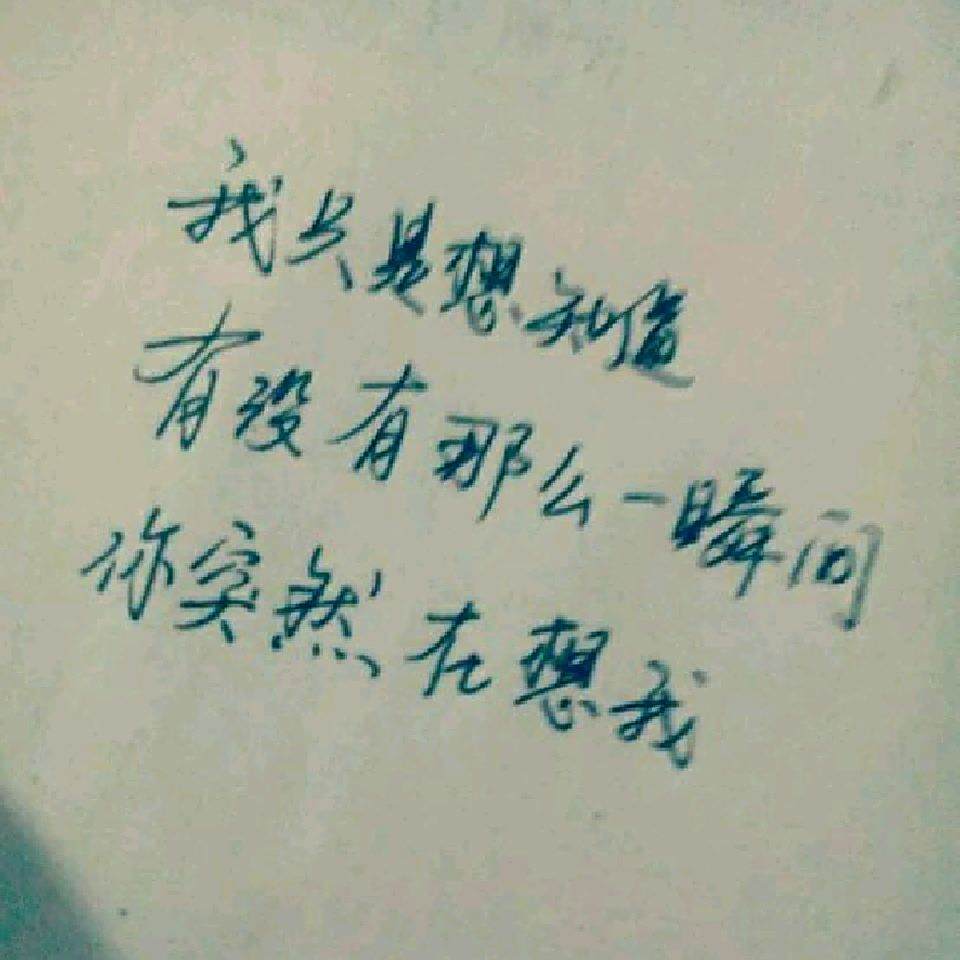 我只是想知道
有没有那么一瞬间
你突然在想我